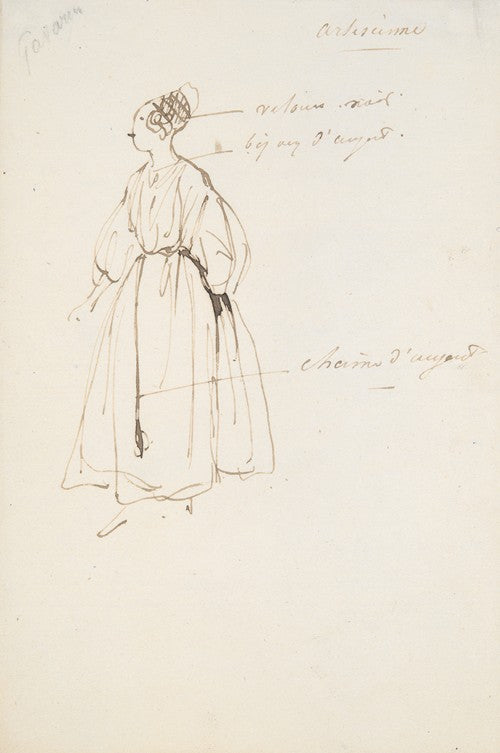 artisienne
velours noir.
bijoux d'argent.
chaine d'argent